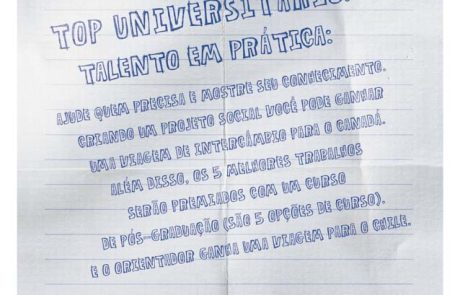 TOP UNIVERSITÁRIO.
TALENTO EM PRÁTICA:
AJUDE QUEM PRECISA E MOSTRE SEU CONHECIMENTO.
CRIANDO UM PROJETO SOCIAL VOCÊ PODE GANHAR
UMA VIAGEM DE INTERCÂMBIO PARA O CANADÁ.
ALÉM DISSO, OS 5 MELHORES TRABALHOS
SERÃO PREMIADOS COM UM CURSO
DE PÓS-GRADUAÇÃO (SÃO 5 OPÇÕES DE CURSO).
E O ORIENTADOR GANHA UMA VIAGEM PARA O CHILE.